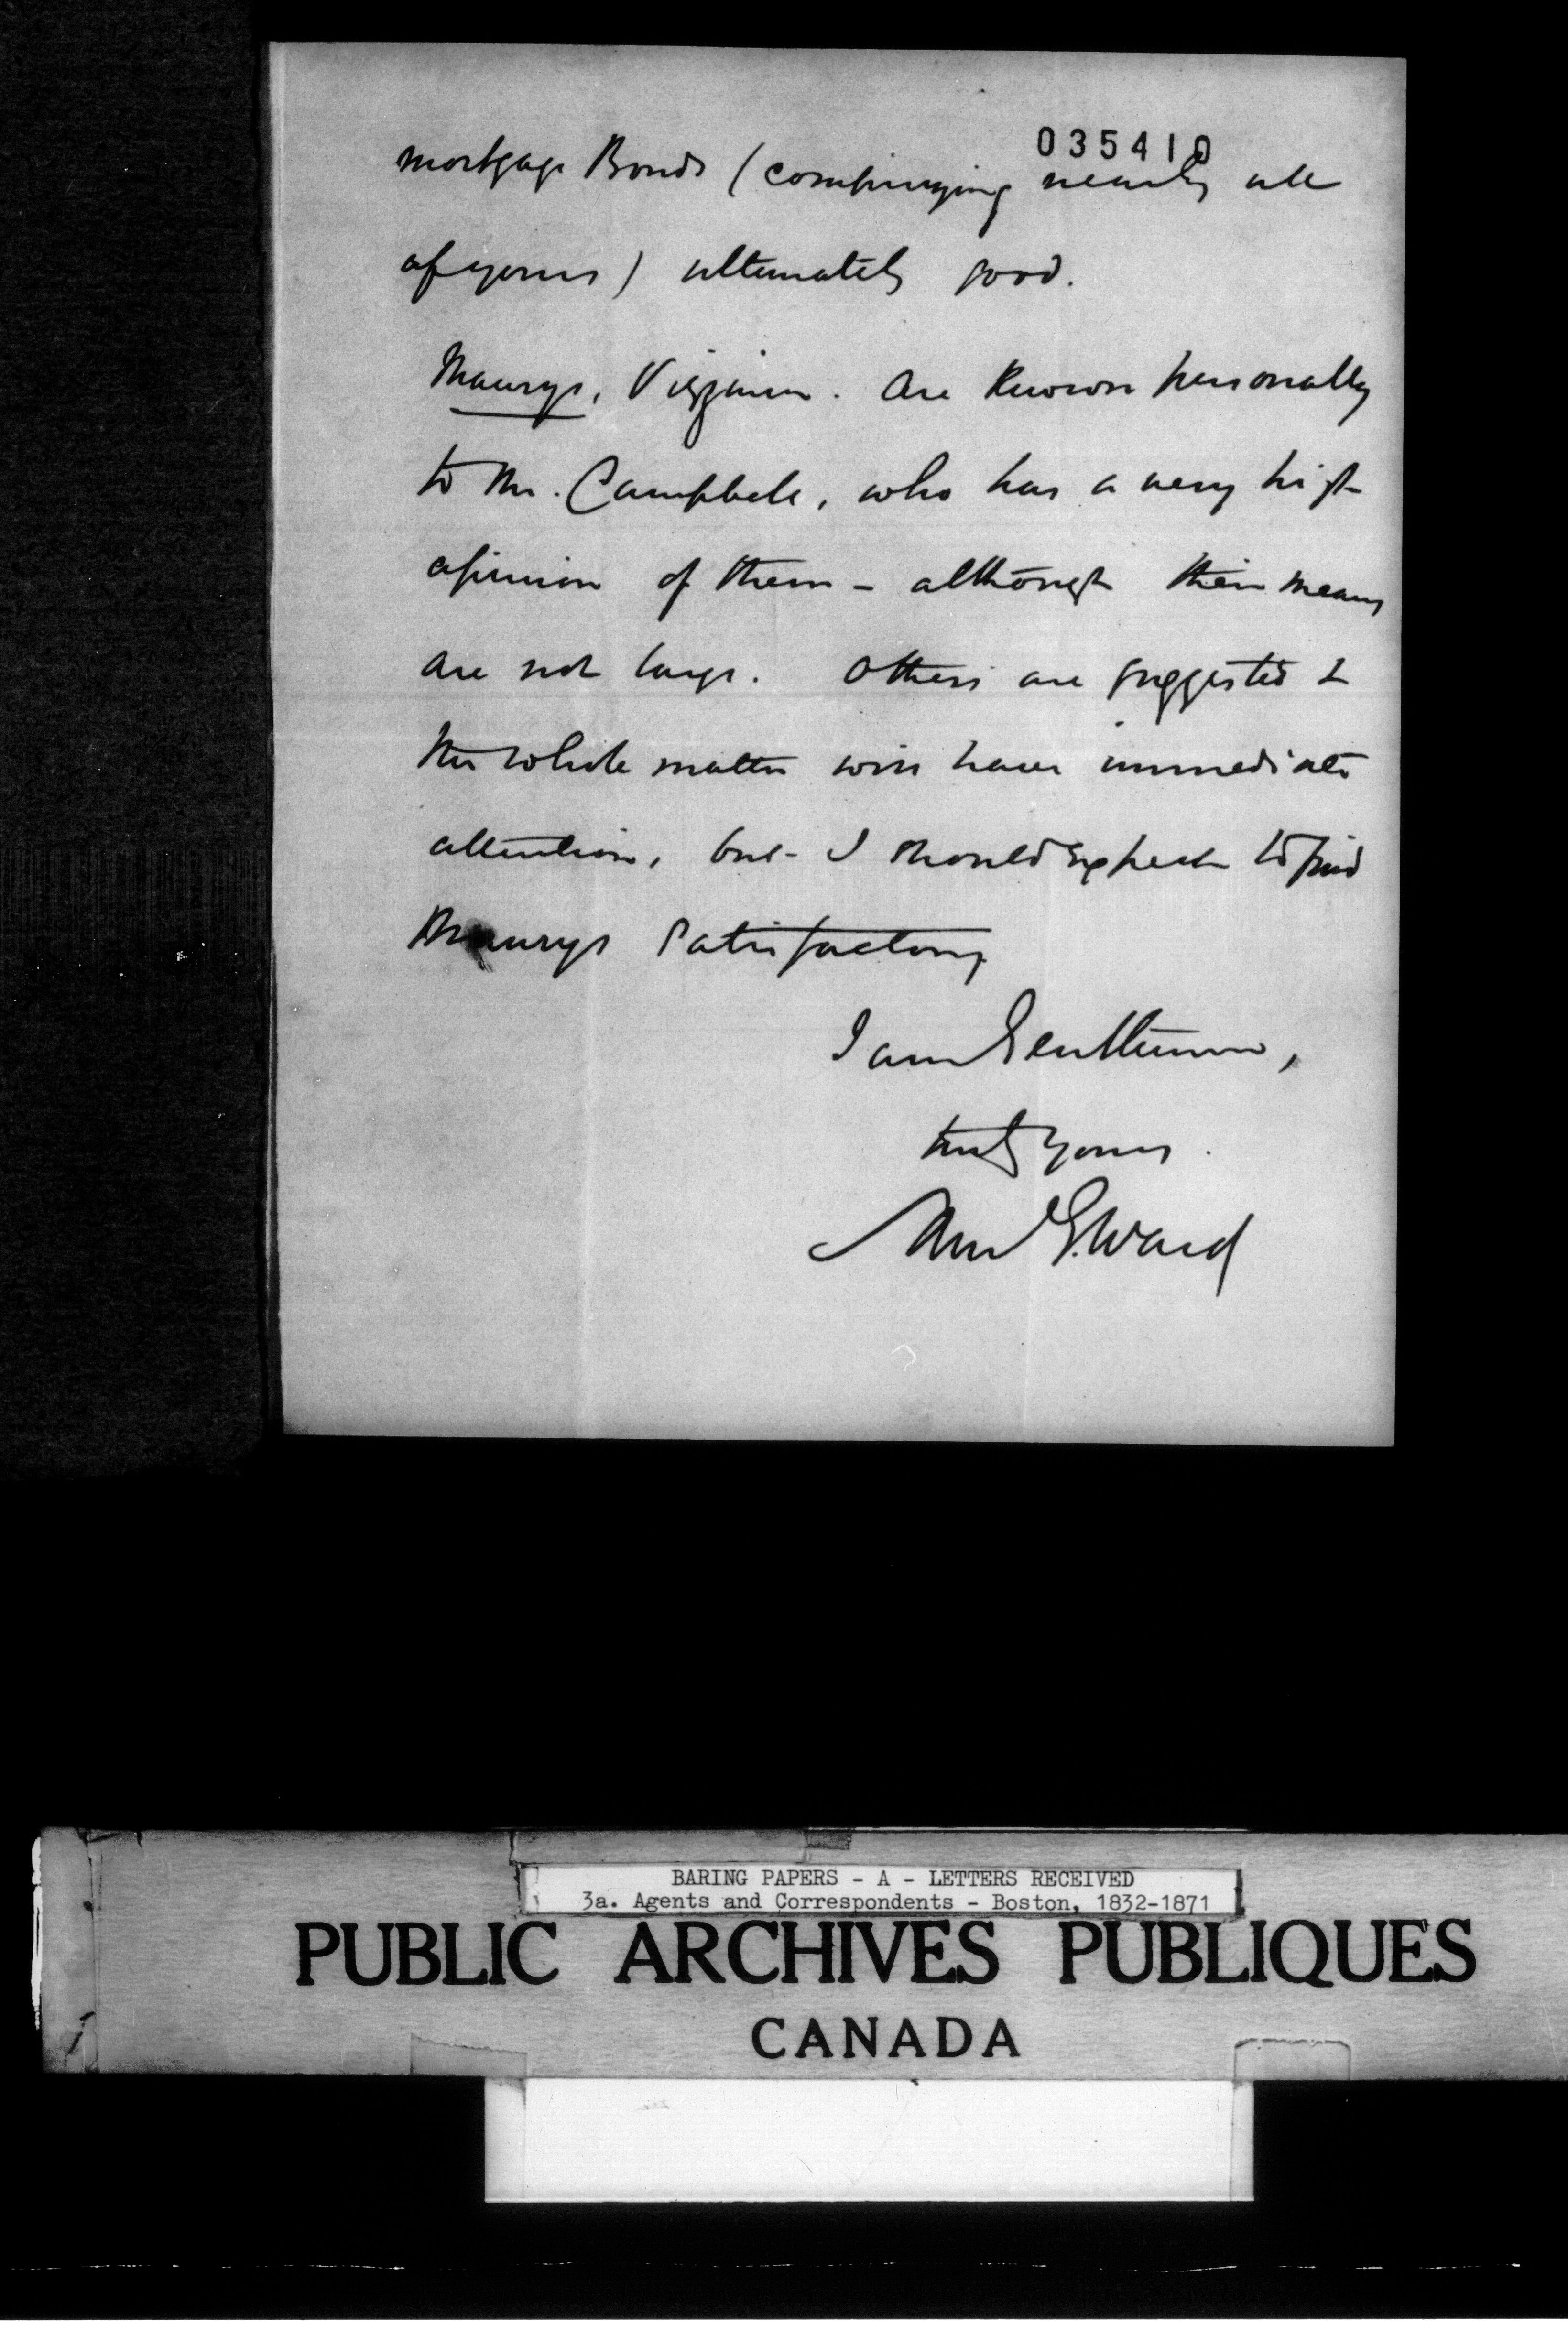 035410
mortgage Bonds (comprising nearly all
of yours) ultimately good.
Maurys, Virginia. Are known personally
to Mr. Campbell, who has a very high
opinion of them - although their means
are not large. Others are suggested &
the whole matter will have immediate
attention, but I should expect to find
Maurys satisfactory
I am Gentlemen,
truly yours.
Saml G. Ward
BARING PAPERS - A - LETTERS RECEIVED
3a. Agents and Correspondents - Boston, 1832-1871
PUBLIC ARCHIVES PUBLIQUES
CANADA